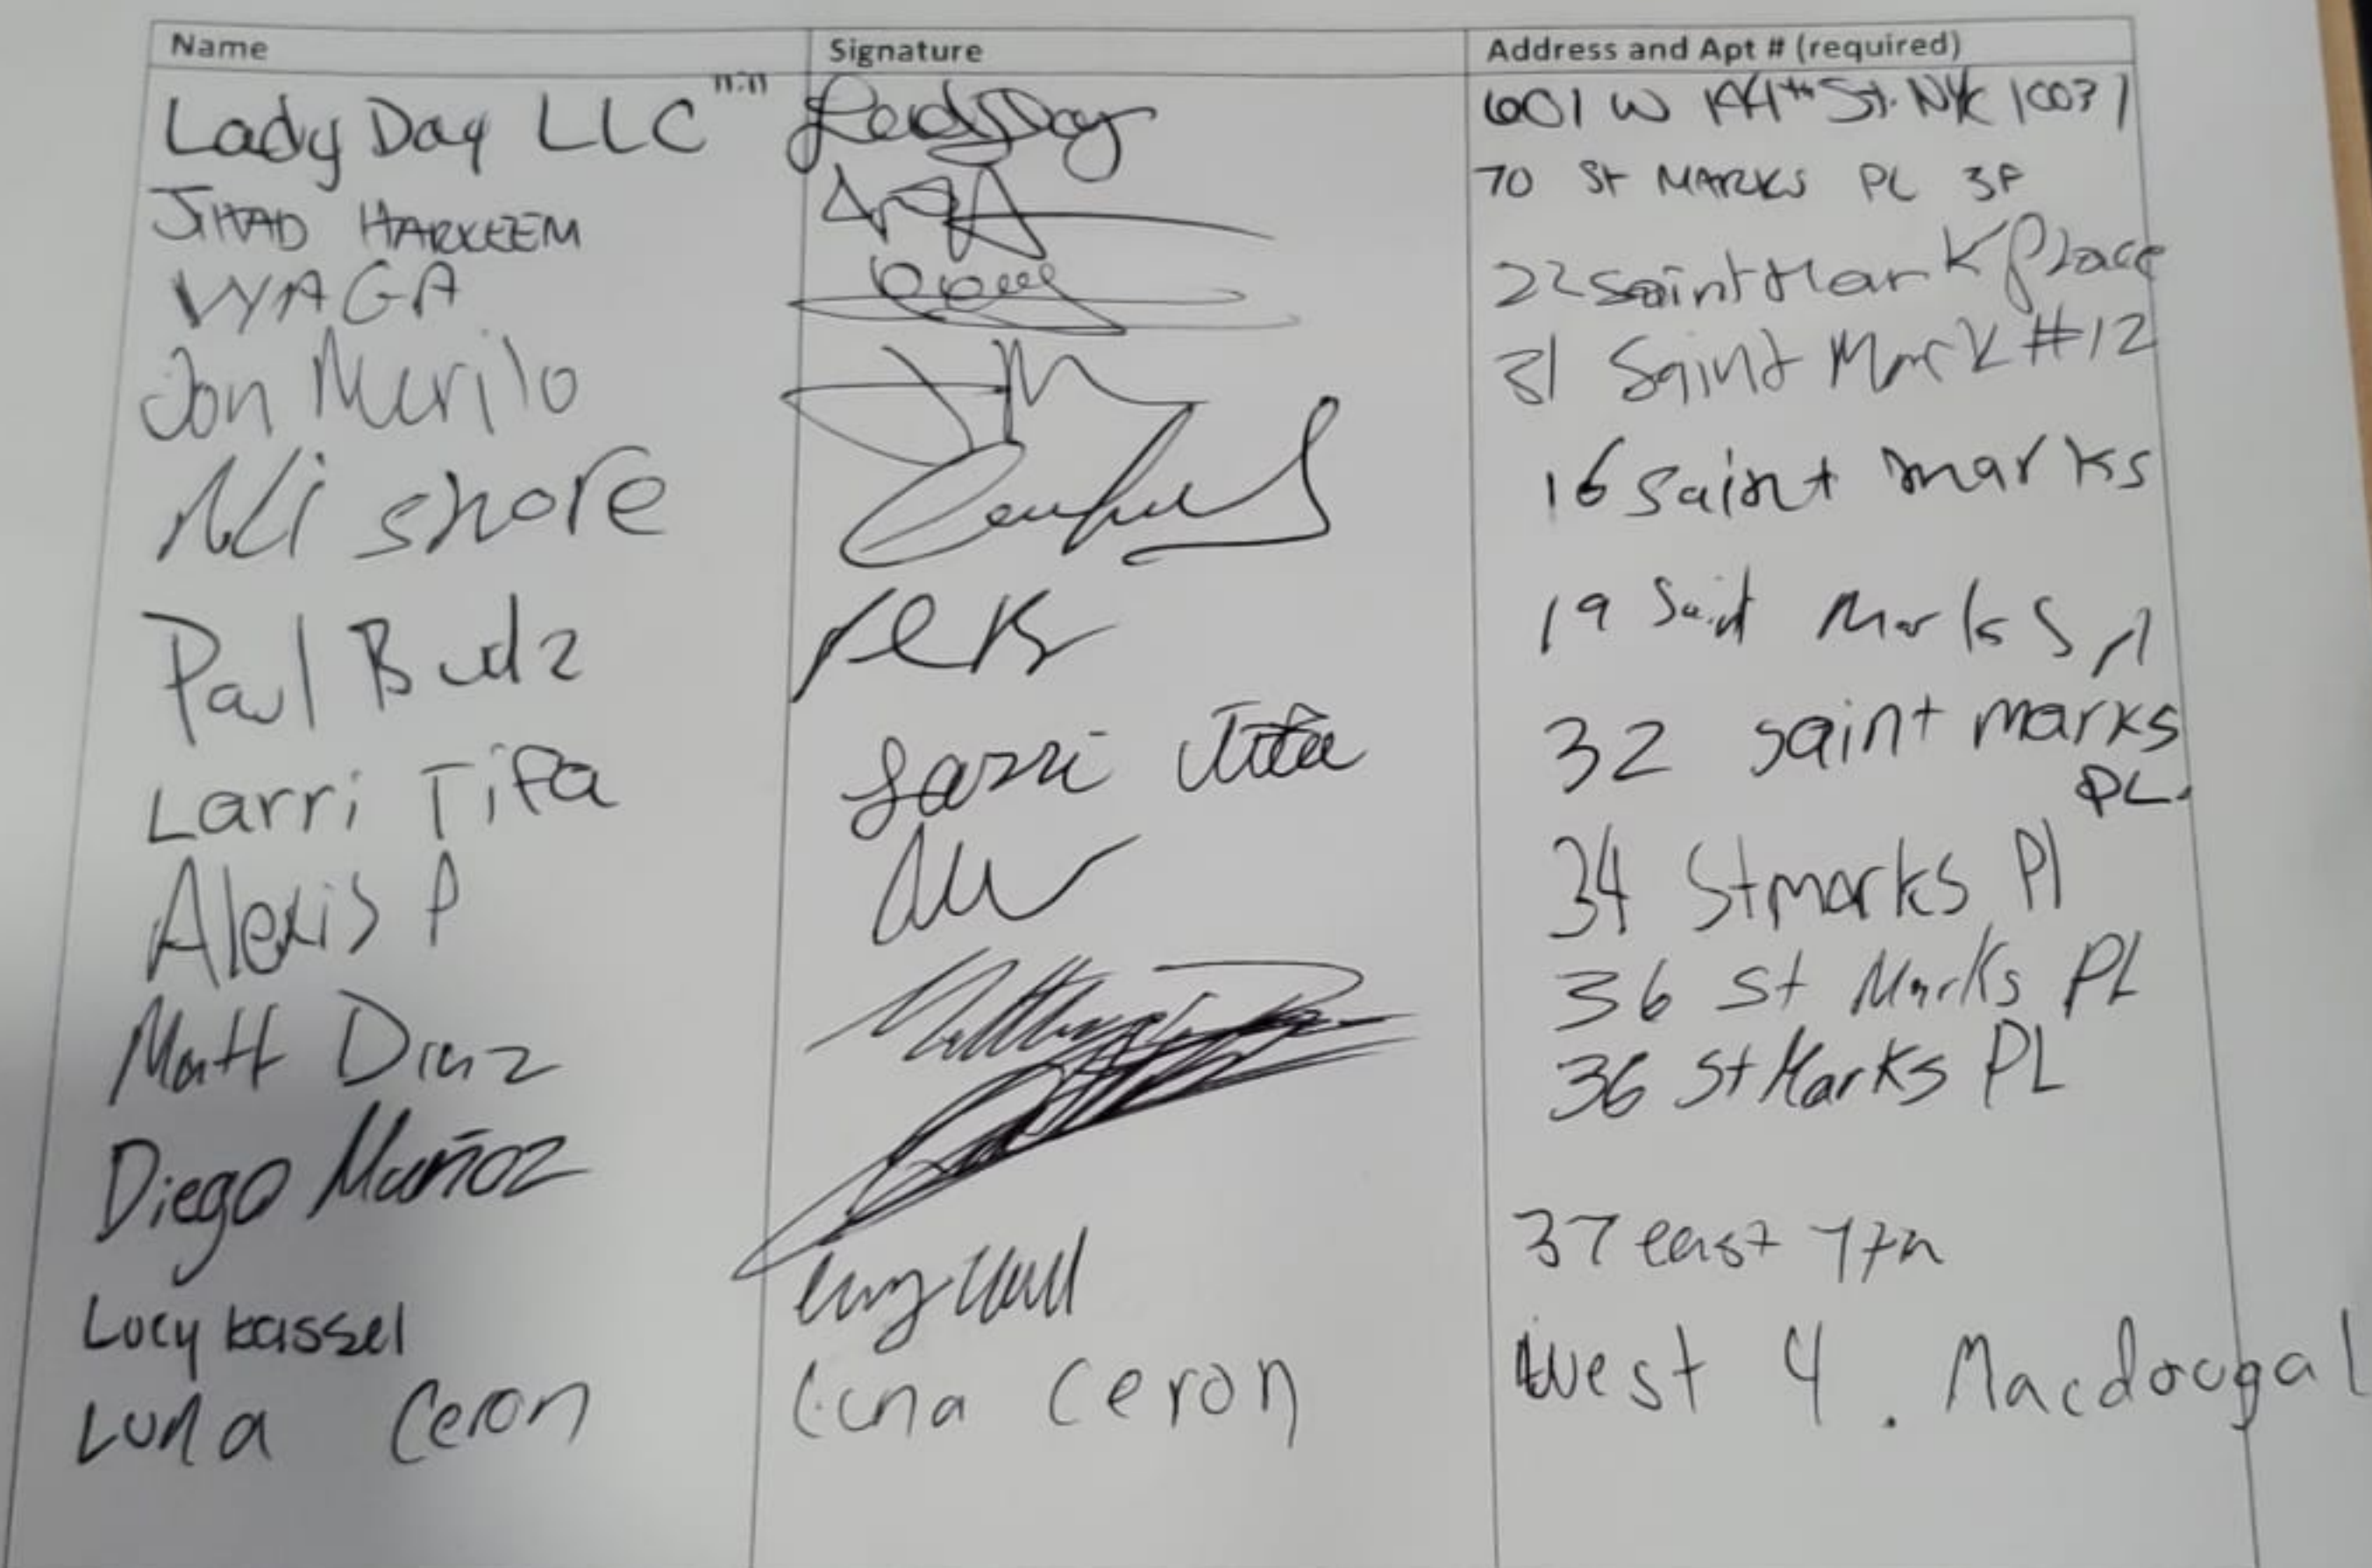 Name Signature Address and Apt # (required)
Lady Day LLC Lady Day 601 W 144th St. NYC 10031
JIHAD HARKEEM 70 St MARKS PL 3F
VYAGA 22 Saint Mark Place
Jon Murilo 31 Saint Mark #12
Ali shore 16 Saint marks
Paul Budz 19 Saint Marks Pl
Larri Tita Larri Tita 32 saint marks
PL.
Alexis P 34 St marks Pl
Matt Diaz 36 St Marks PL
Diego Muñoz 36 St Marks PL
Lucy kassel 37 east 7th
Luna Ceron Luna Ceron West 4. Macdougal